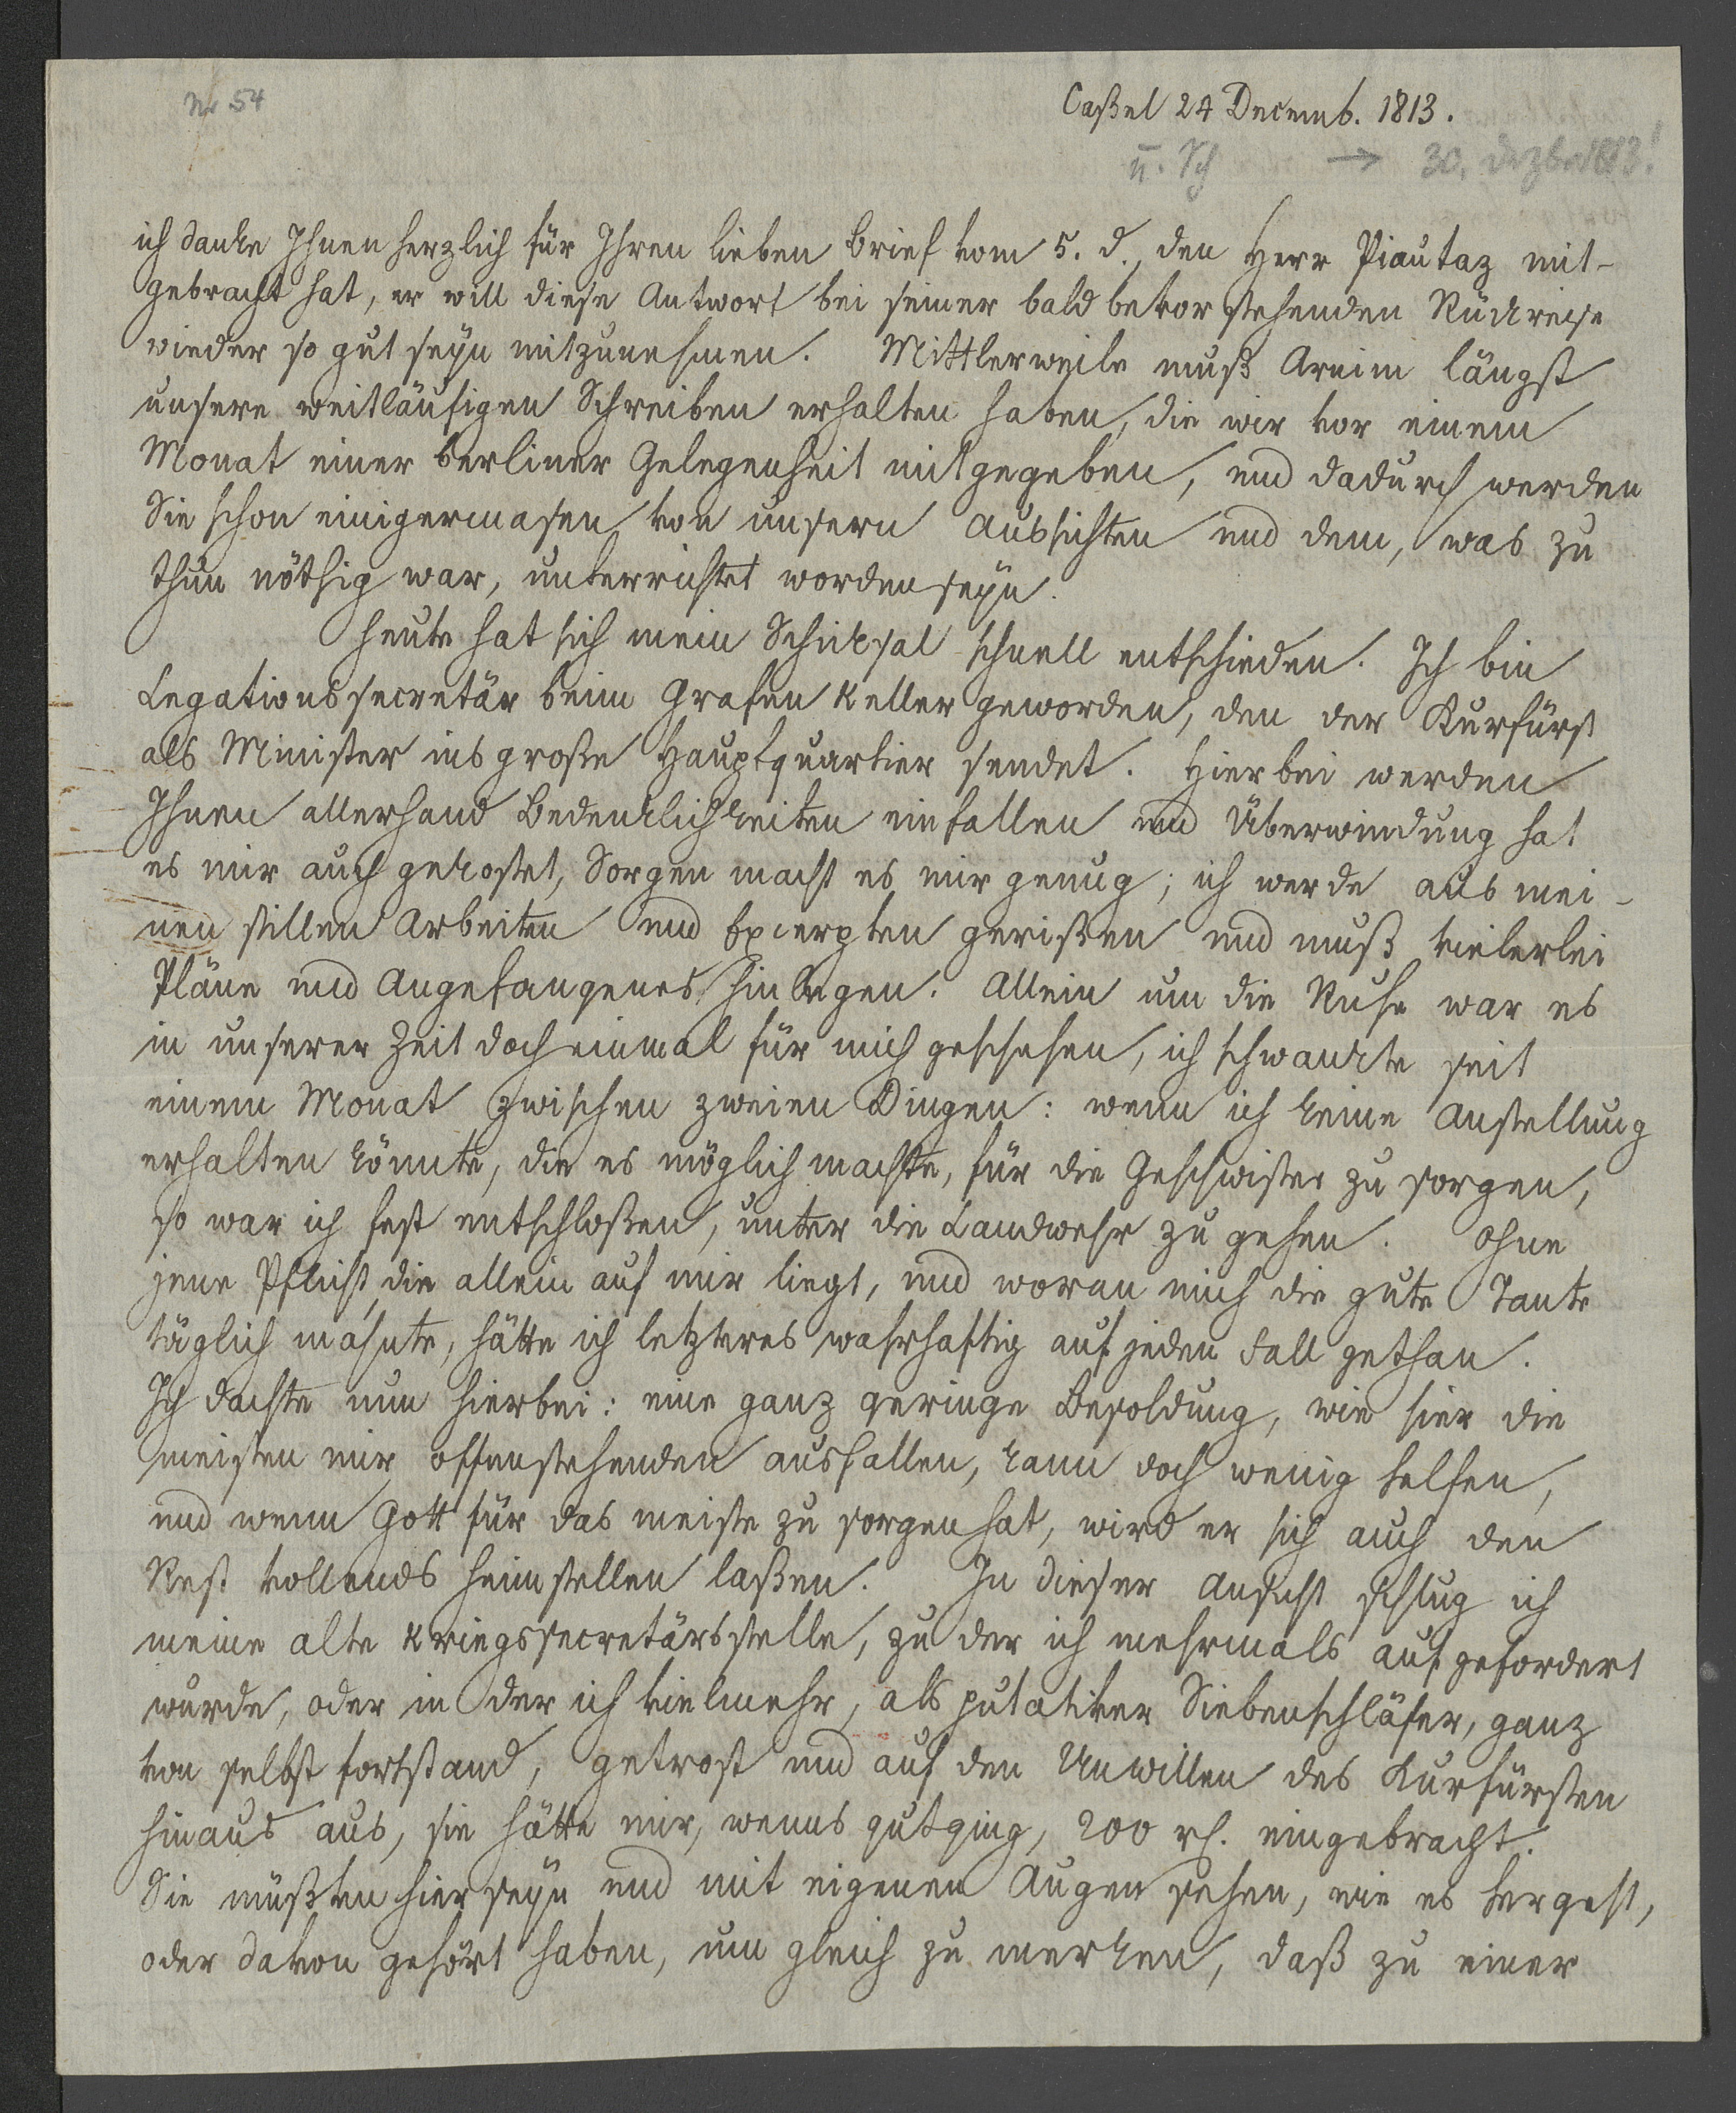 Nr 54
Caßel 24 Decemb. 1813.
→ 30. dezber 1813!
ich danke Ihnen herzlich für Ihren lieben Brief vom 5. d., den Herr Piautaz mit-
gebracht hat, er will diese Antwort bei seiner bald bevor stehenden Rückreise
wieder so gut seyn mitzunehmen. Mittlerweile muß Arnim längst
unsere weitläufigen Schreiben erhalten haben, die wir vor einem
Monat einer berliner Gelegenheit mitgegeben, und dadurch werden
Sie schon einigermasen von unsern Aussichten und dem, was zu
thun nöthig war, unterrichtet worden seyn.
Heute hat sich mein Schicksal schnell entschieden. Ich bin
Legationssecretär beim Grafen Keller geworden, den der Kurfürst
als Minister ins große Hauptquartier sendet. Hierbei werden
Ihnen allerhand Bedenklichkeiten einfallen und Überwindung hat
es mir auch gekostet, Sorgen macht es mir genug; ich werde aus mei-
nen stillen Arbeiten und Excerpten gerißen und muß vielerlei
Pläne und Angefangenes hinlegen. Allein um die Ruhe war es
in unserer Zeit doch einmal für mich geschehen, ich schwankte seit
einem Monat zwischen zweien Dingen: wenn ich keine Anstellung
erhalten könnte, die es möglich machte, für die Geschwister zu sorgen,
so war ich fest entschloßen, unter die Landwehr zu gehen. Ohne
jene Pflicht, die allein auf mir liegt, und woran mich die gute Tante
täglich mahnte, hätte ich letzteres wahrhaftig auf jeden Fall gethan.
Ich dachte nun hierbei: eine ganz geringe Besoldung, wie hier die
meisten mir offenstehenden ausfallen, kann doch wenig helfen,
und wenn Gott für das meiste zu sorgen hat, wird er sich auch den
Rest vollends heimstellen laßen. In dieser Ansicht schlug ich
meine alte Kriegssecretärsstelle, zu der ich mehrmals aufgefordert
wurde, oder in der ich vielmehr, als putativer Siebenschläfer, ganz
von selbst fortstand, getrost und auf den Unwillen des Kurfürsten
hinaus aus, sie hätte mir, wenns gutging, 200 rh. eingebracht.
Sie müßten hier seyn und mit eigenen Augen sehen, wie es hergeht,
oder davon gehört haben, um gleich zu merken, daß zu einer